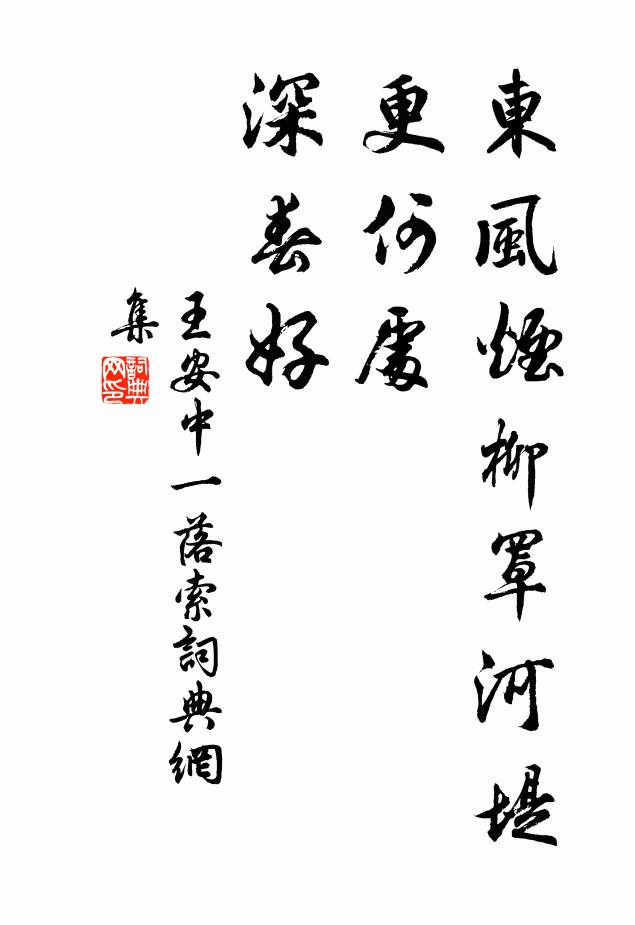 東風煙柳罩河堤
更何處
深春好
王安中一落索詞典網
集
詞典
网印